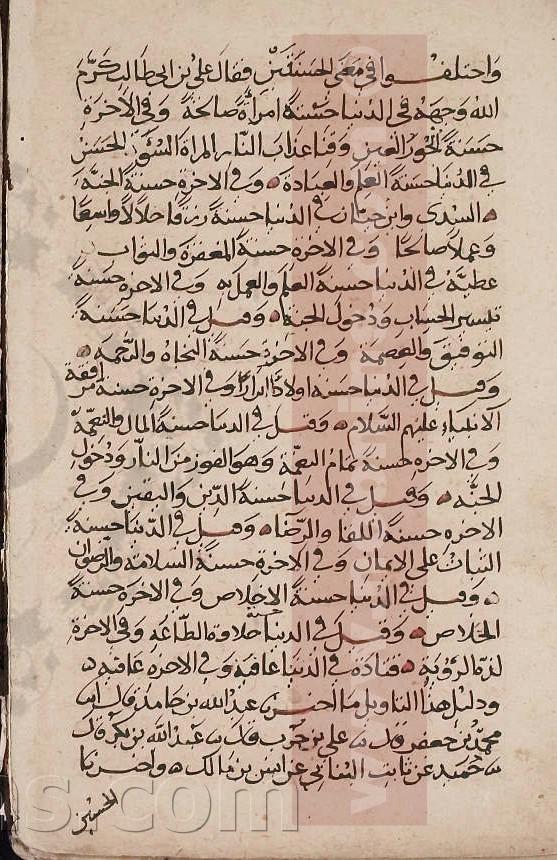 واختلفوا في معنى الحسنتين فقال علي بن ابي طالب كرم
الله وجهه في الدنيا حسنة امرأة صالحة وفي الآخرة
حسنة الحور العين وقنا عذاب النار المراة السوء الحسن
في الدنيا حسنة العلم والعبادة وفي الاخرة حسنة الجنة
السدى وابن حيان في الدنيا حسنة رزقا حلالا واسعا
وعملا صالحا وفي الاخرة حسنة المغفرة والثواب
عطية في الدنيا حسنة العلم والعمل به وفي الاخرة حسنة
تيسير الحساب ودخول الجنة وقيل في الدنيا حسنة
التوفيق والعصمة وفي الاخرة حسنة النجاة والرحمة
وقيل في الدنيا حسنة اولادا ابرارا وفي الاخرة حسنة مرافقة
الانبياء عليهم السلام وقيل في الدنيا حسنة المال والنعمة
وفي الاخرة حسنة تمام النعمة وهو الفوز من النار ودخول
الجنة وقيل في الدنيا حسنة الدين واليقين وفي
الاخرة حسنة اللقا والرضا وقيل في الدنيا حسنة
الثبات على الايمان وفي الاخرة حسنة السلامة والرضوان
وقيل في الدنيا حسنة الاخلاص وفي الاخرة حسنة
الخلاص وقيل في الدنيا حسنة حلاوة الطاعة وفي الاخرة
لذة الرؤية قتادة في الدنيا عافية وفي الاخرة عافية
ودليل هذا التاويل ما اخبرنا عبد الله بن حامد قال نا
محمد بن جعفر قال نا علي بن حرب قال نا عبد الله بن بكر قال
نا حميد عن ثابت البناني عن انس بن مالك واخبرنا
الحسين